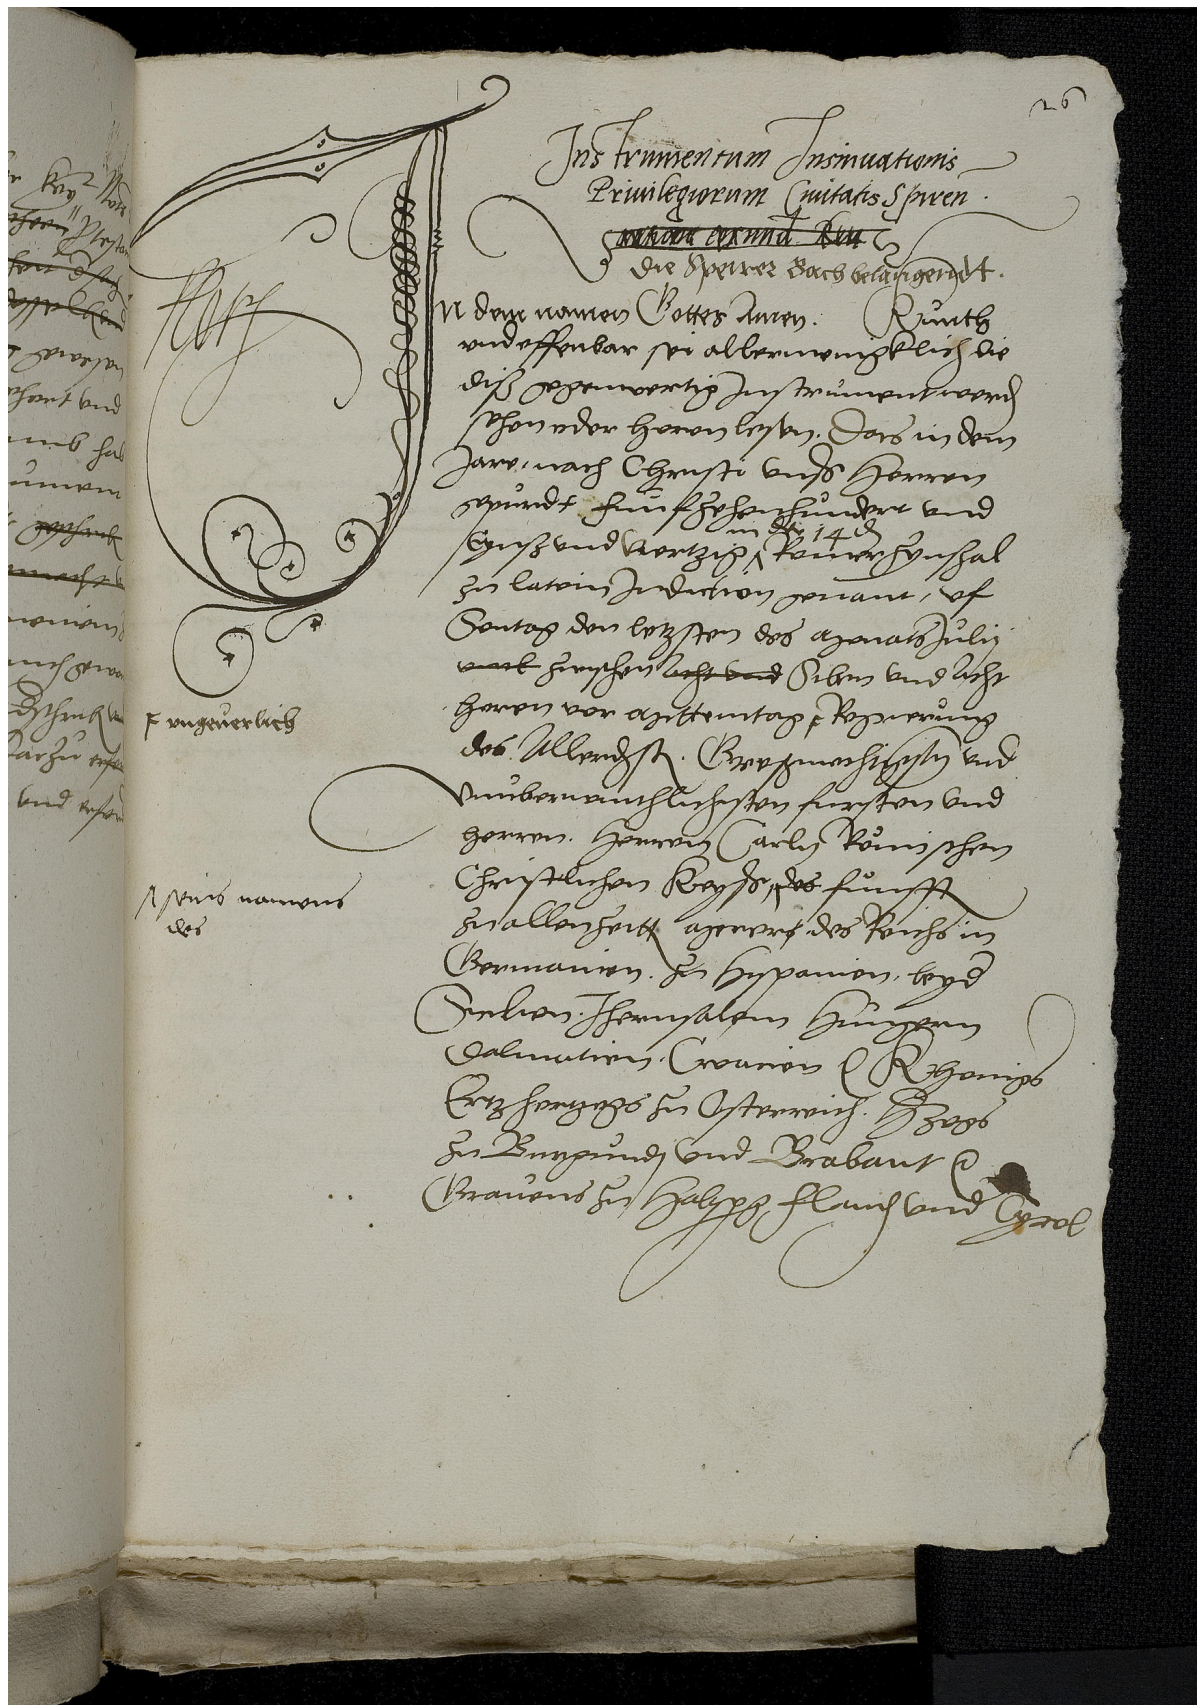 26
Instrumentum Insinuationis
Privilegiorum Civitatis Spiren.
die Speirer Bach belangendt.
In dem namen Gottes Amen. Kunth
und offenbar sei allermenigklich die
diß gegenwertig Instrument werd
sehen oder horen lesen. Das in dem
Jare, nach Christi unsers Herren
gepurdt funfzehenhundert und
Eynß und viertzig, in der 14 Römerzynßzal
zu latein Indiction genant, uf
Sontag den letzsten des Monats Julij
zwischen acht und Siben und Acht
horen vor Mittemtag Regierung
des Allerdurchst. Großmechtigsten und
Unuberwinthlichsten fursten und
herren. Herren Carln Römischen
Christlichen Keysers, des funfft
zu allen Zeitt Merers des Reichs in
Germanien. zu Hispanien, beyd
Sicilien. Jherusalem Hungern
Dalmatien. Croacien Khonigs
Ertzhertzogs zu Osterreich. Hzogs
zu Burgund und Brabant
Gravens zu Habspg, fland und Tyrol
ungeverlich
seins namens
des